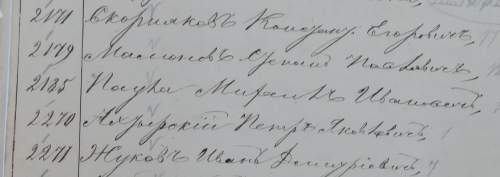 2171 Скориаковъ Констант. Егоровичъ,
2179 Масюковъ Павловичъ,
2185 Паука Мираилъ Ивановичъ,
2270 Ахтырскій Петръ Яковлевичъ,
2271 Жуковъ Иванъ Дмитріевичъ,